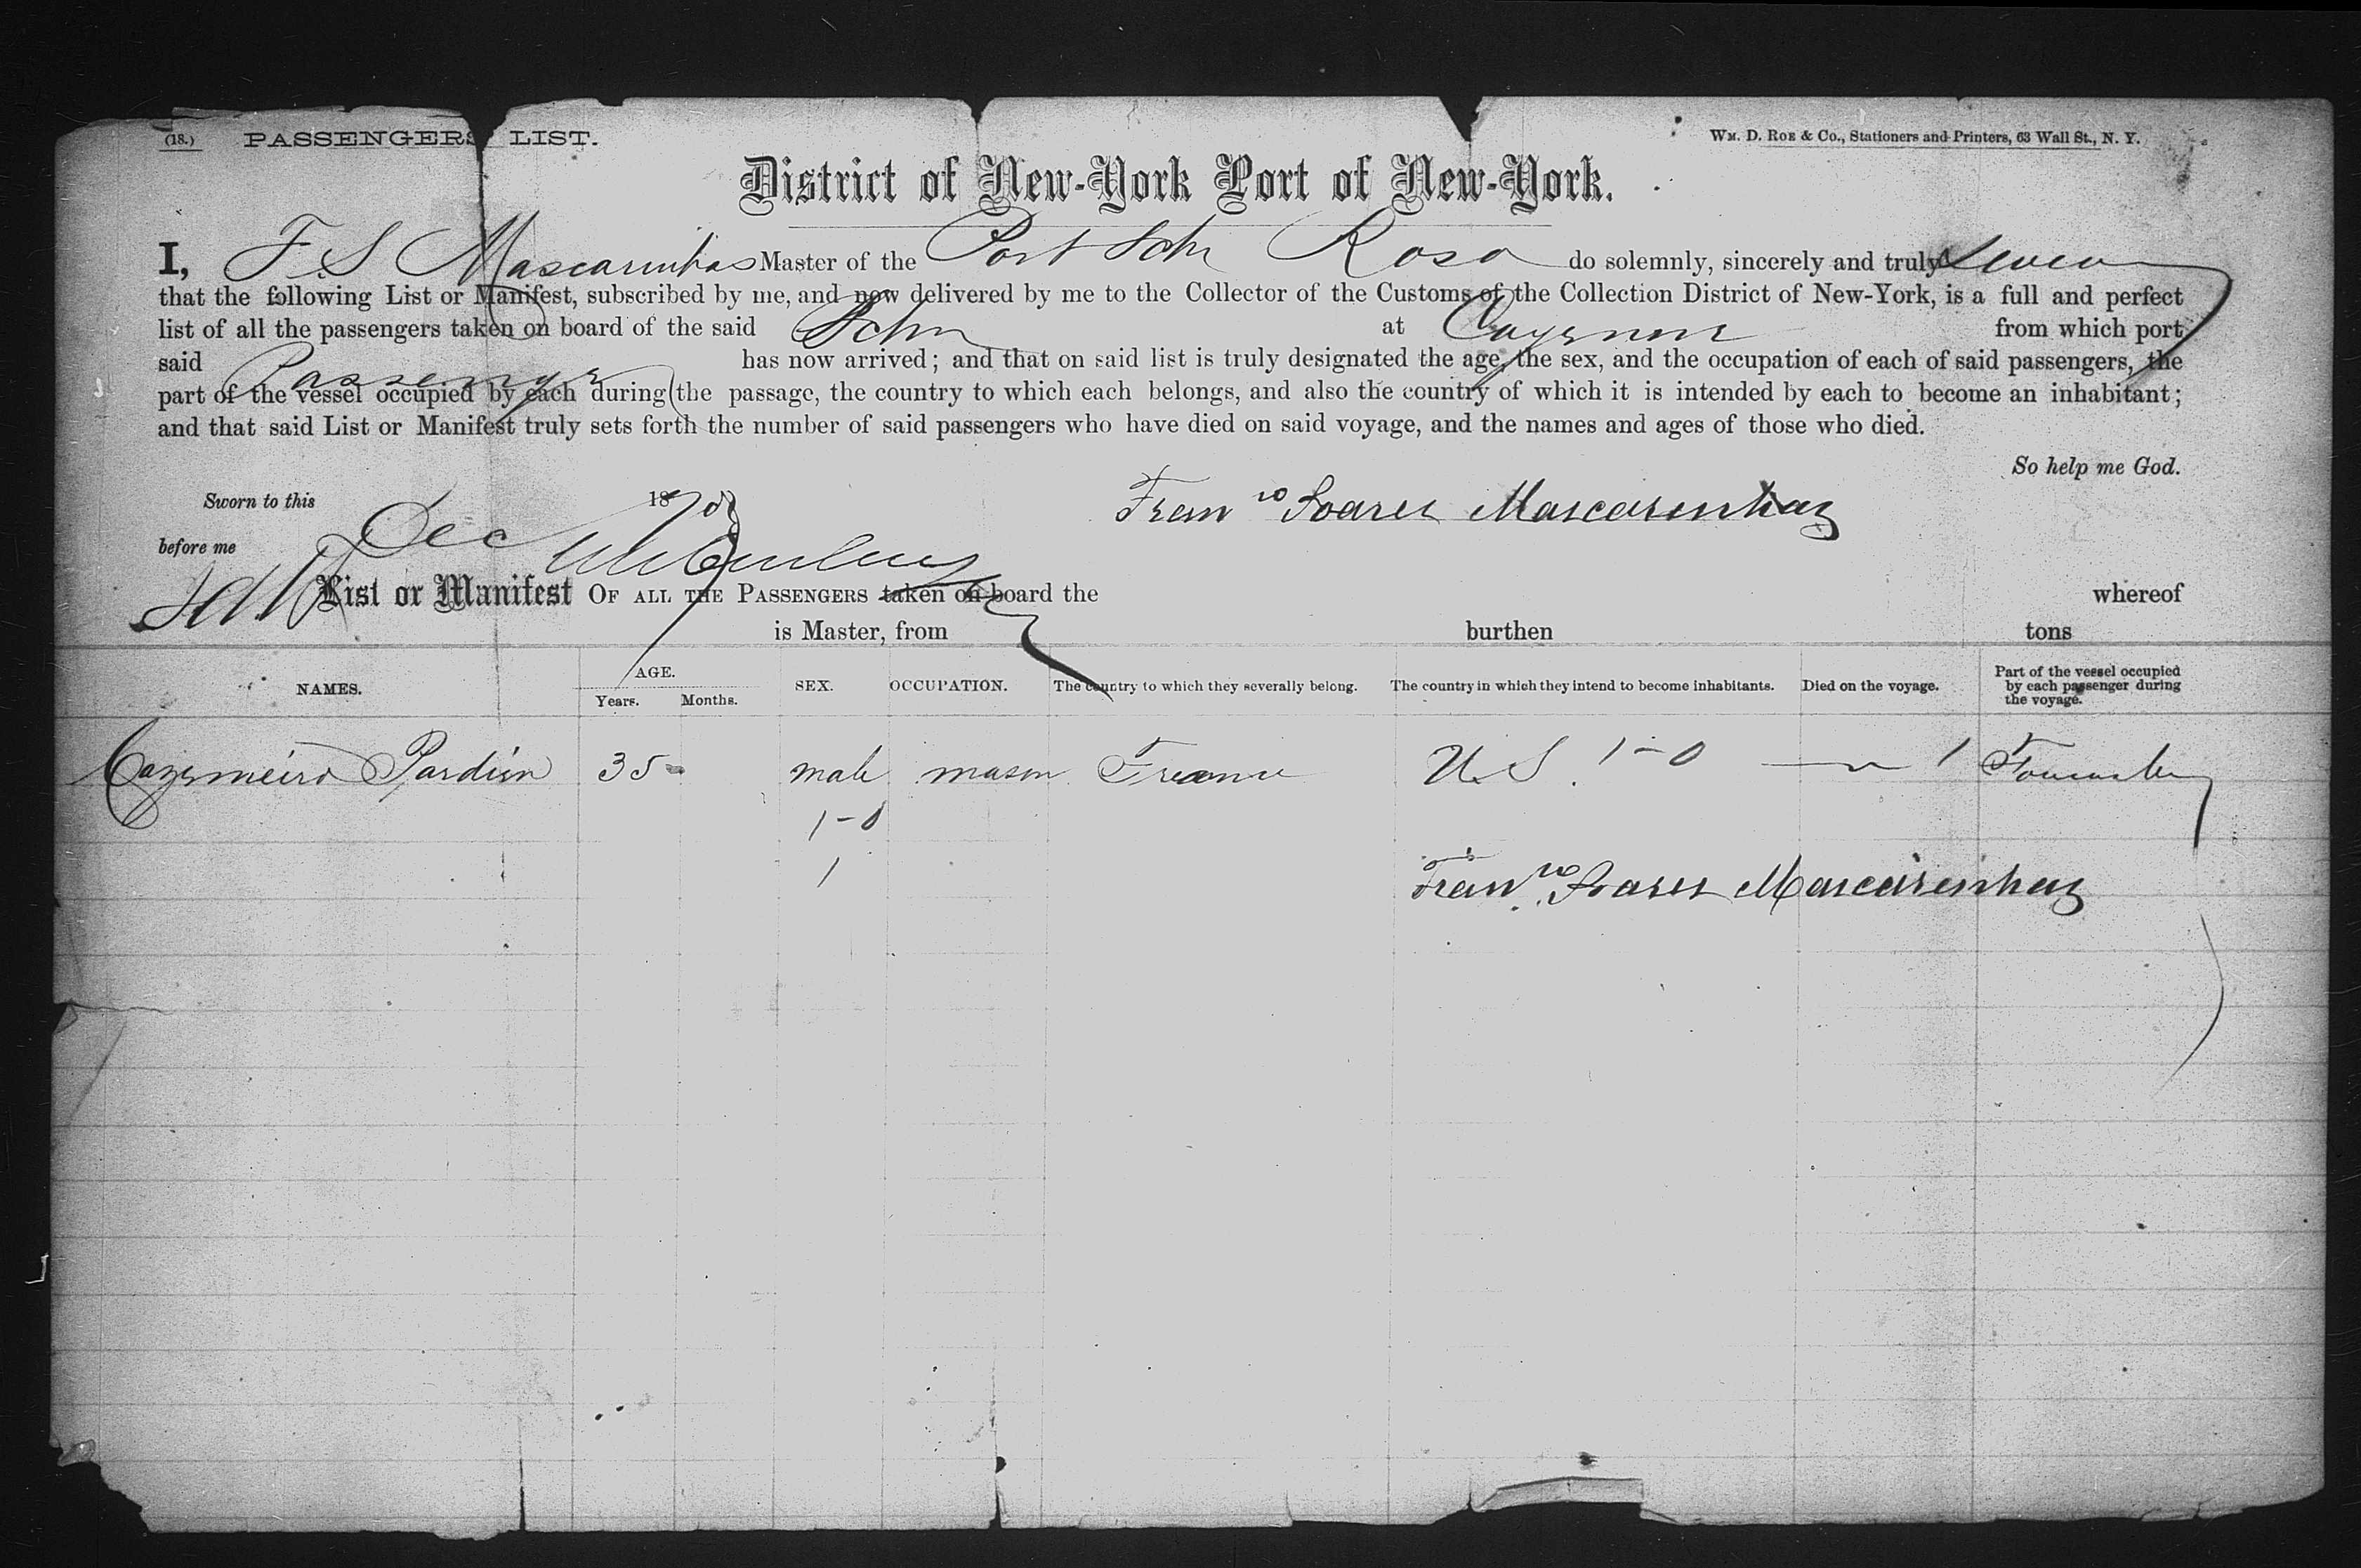 (18.) PASSENGERS LIST. Wm. D. Roe & Co., Stationers and Printers, 63 Wall St., N. Y.
District of New-York Port of New-York.
I, F. S Mascarinhas Master of the Port Schr Rosa do solemnly, sincerely and truly Swear
that the following List or Manifest, subscribed by me, and now delivered by me to the Collector of the Customs of the Collection District of New-York, is a full and perfect
list of all the passengers taken on board of the said Schr at Cayenne from which port
said Passenger has now arrived; and that on said list is truly designated the age, the sex, and the occupation of each of said passengers, the
part of the vessel occupied by each during the passage, the country to which each belongs, and also the country of which it is intended by each to become an inhabitant;
and that said List or Manifest truly sets forth the number of said passengers who have died on said voyage, and the names and ages of those who died.
So help me God.
Sworn to this Dec 1878 Franco Soares Mascarenhas
before me
List or Manifest Of all the Passengers taken on board the whereof
is Master, from burthen tons
NAMES. AGE. Years. Months. SEX. OCCUPATION. The country to which they severally belong. The country in which they intend to become inhabitants. Died on the voyage. Part of the vessel occupied by each passenger during the voyage.
Cazemeiro Pardien 35 male mason France U.S. 1-0 1
1-0
1
Franco Soares Mascarenhas